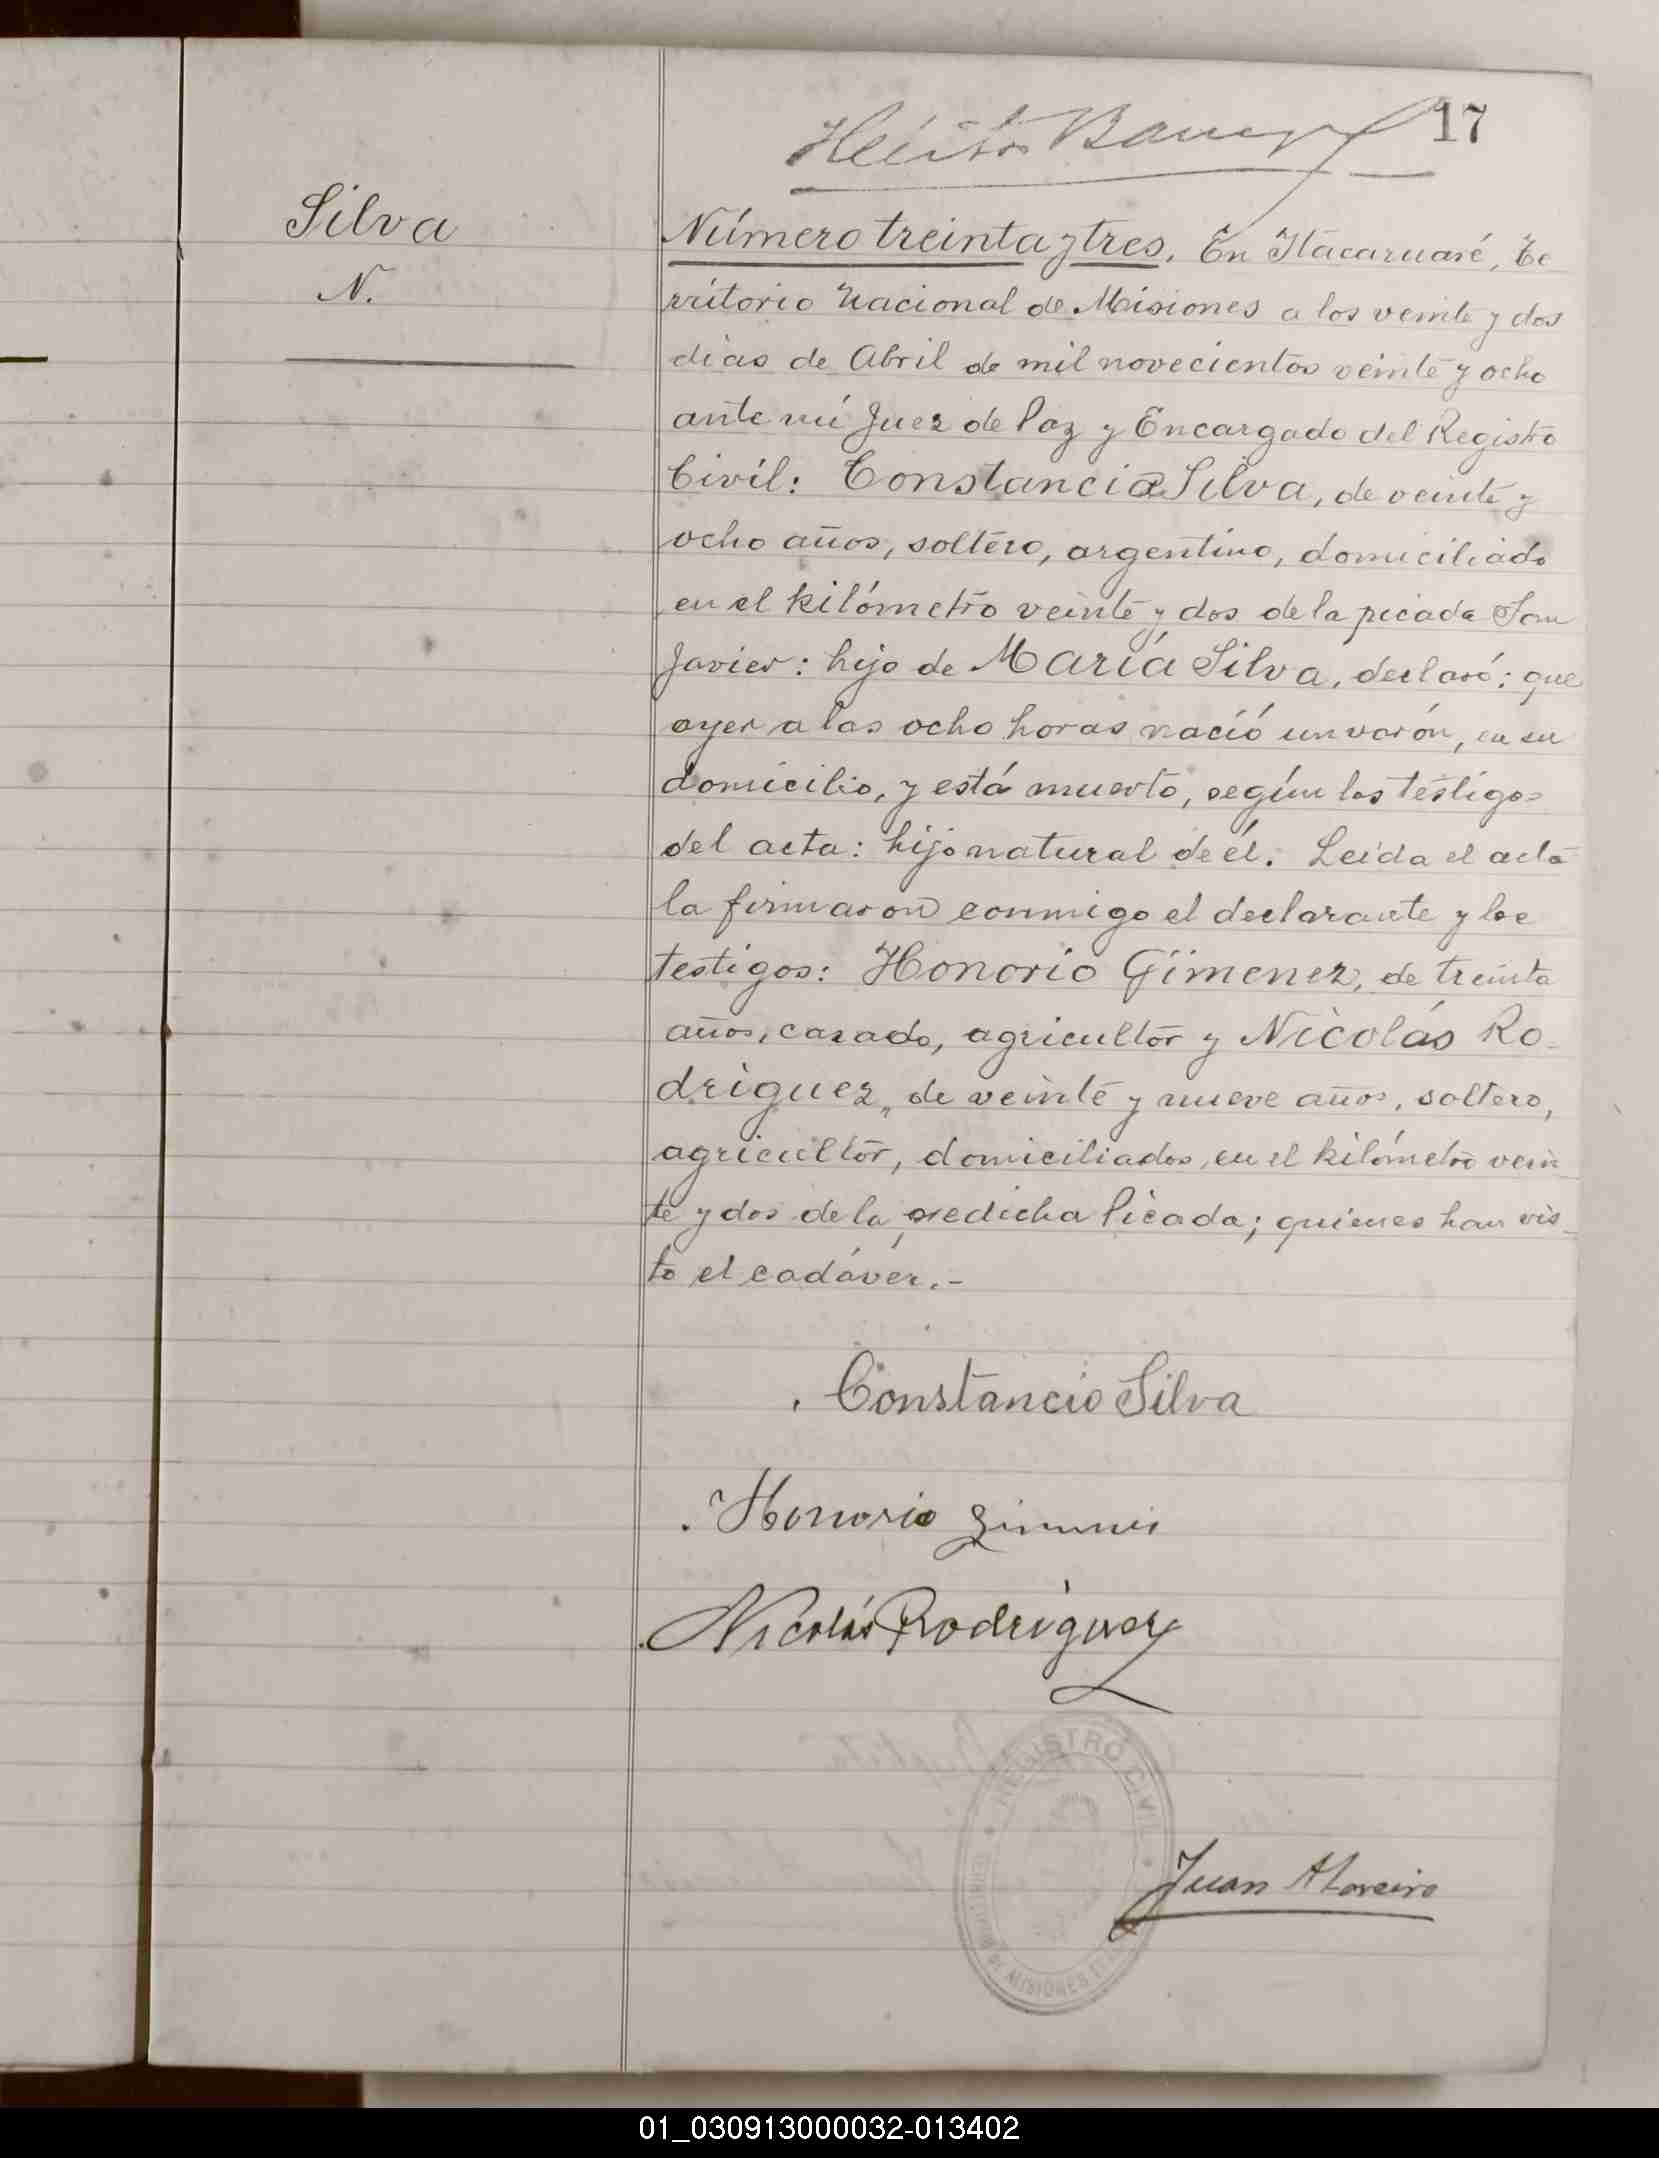 17
Silva
N.
Número treinta y tres. En Itacaruaré, Te
rritorio Nacional de Misiones a los veinte y dos
dias de Abril de mil novecientos veinte y ocho
ante mí Juez de Paz y Encargado del Registro
Civil: Constancio Silva, de veinte y
ocho años, soltero, argentino, domiciliado
en el kilómetro veinte y dos de la picada San
Javier: hijo de María Silva, declaró: que
ayer a las ocho horas nació un varón, en su
domicilio, y está muerto, según los testigos
del acta: hijo natural de él. Leida el acta
la firmaron conmigo el declarante y los
testigos: Honorio Gimenez, de treinta
años, casado, agricultor y Nicolás Ro-
driguez, de veinte y nueve años, soltero,
agricultor, domiciliados en el kilómetro vein
te y dos de la predicha Picada; quienes han vis-
to el cadáver.-
Constancio Silva
Honorio
Nicolás Rodriguez
REGISTRO CIVIL
DE MISIONES
Juan
01_030913000032-013402